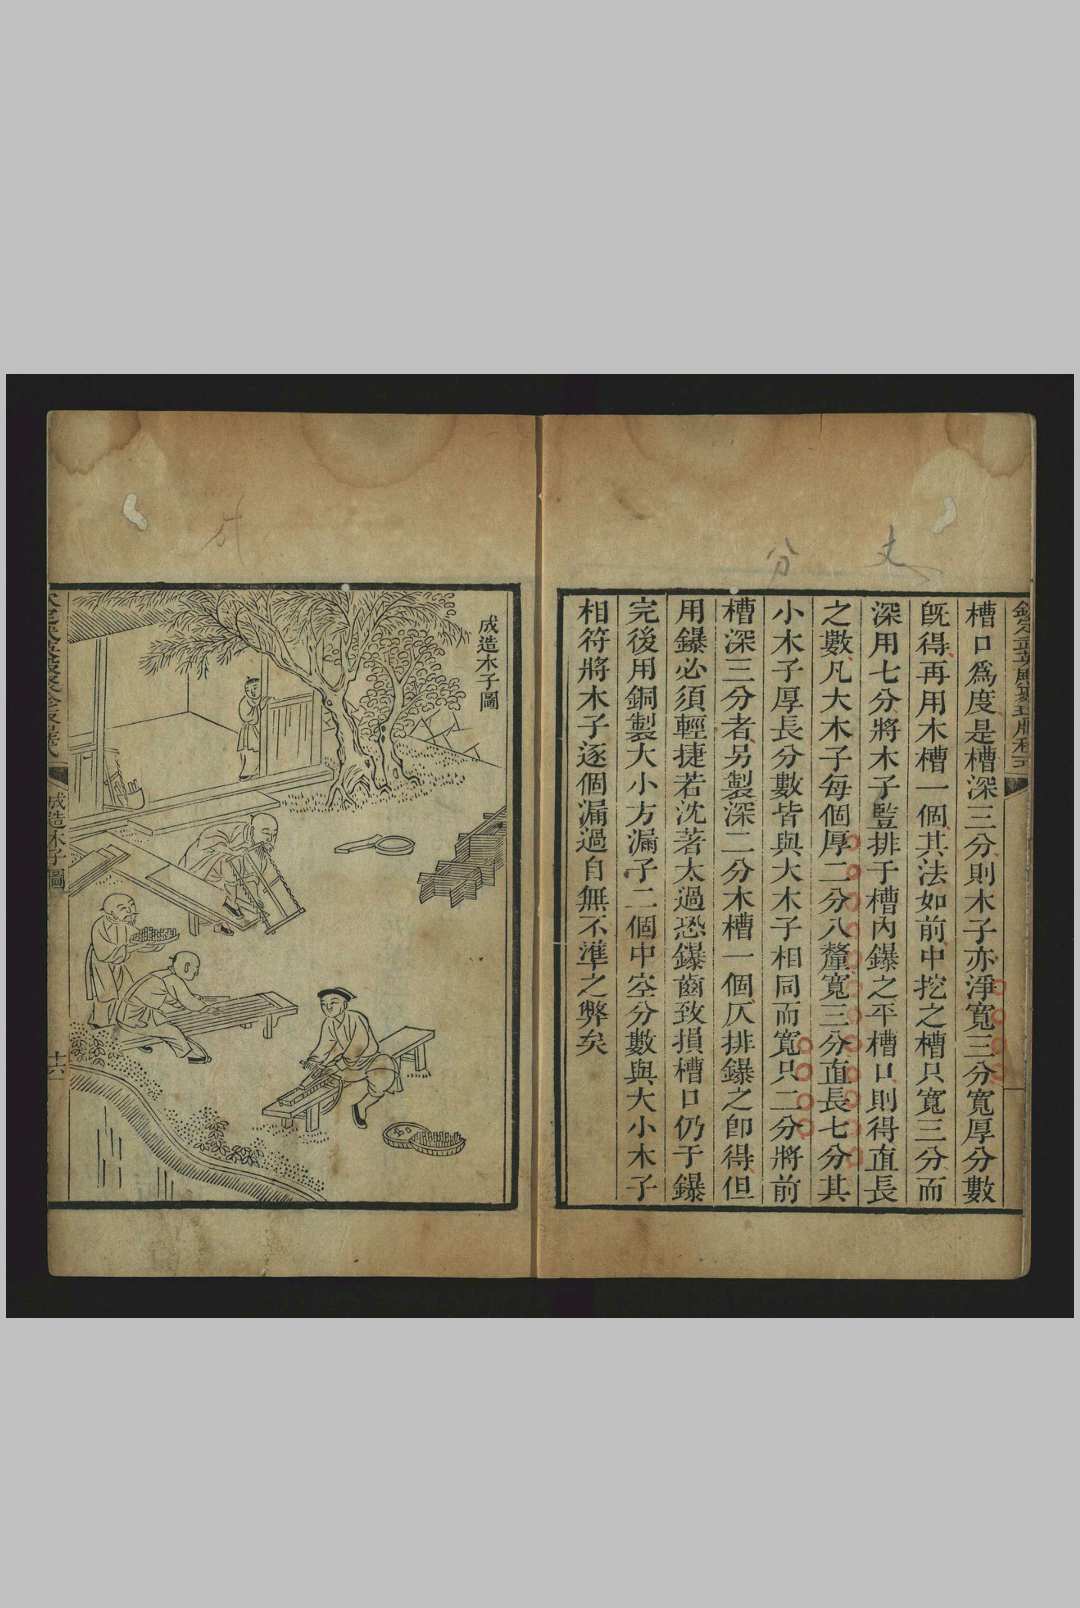 槽口爲度是槽深三分則木子亦淨寬三分寬厚分數
旣得再用木槽一個其法如前中挖之槽只寬三分而
深用七分將木子豎排于槽內鑤之平槽口則得直長
之數凡大木子每個厚二分八釐寬三分直長七分其
小木子厚長分數皆與大木子相同而寬只二分將前
槽深三分者另製深二分木槽一個仄排鑤之卽得但
用鑤必須輕捷若沈著太過恐鑤齒致損槽口仍于鑤
完後用銅製大小方漏子二個中空分數與大小木子
相符將木子逐個漏過自無不準之弊矣
分
成造木子圖
成造木子圖
十六